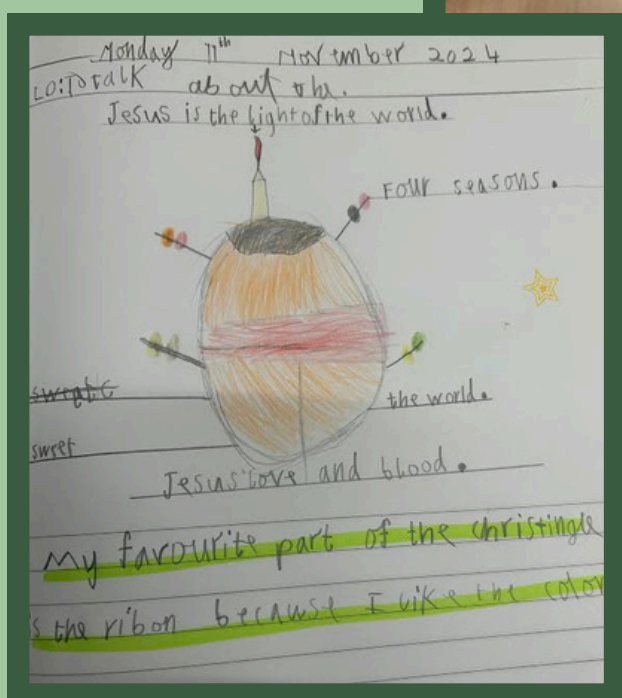 Monday 11th November 2024
LO: To talk about the.
Jesus is the light of the world.
Four seasons.
the world.
sweet
Jesus' love and blood.
My favourite part of the christingle
is the ribon because I like the color